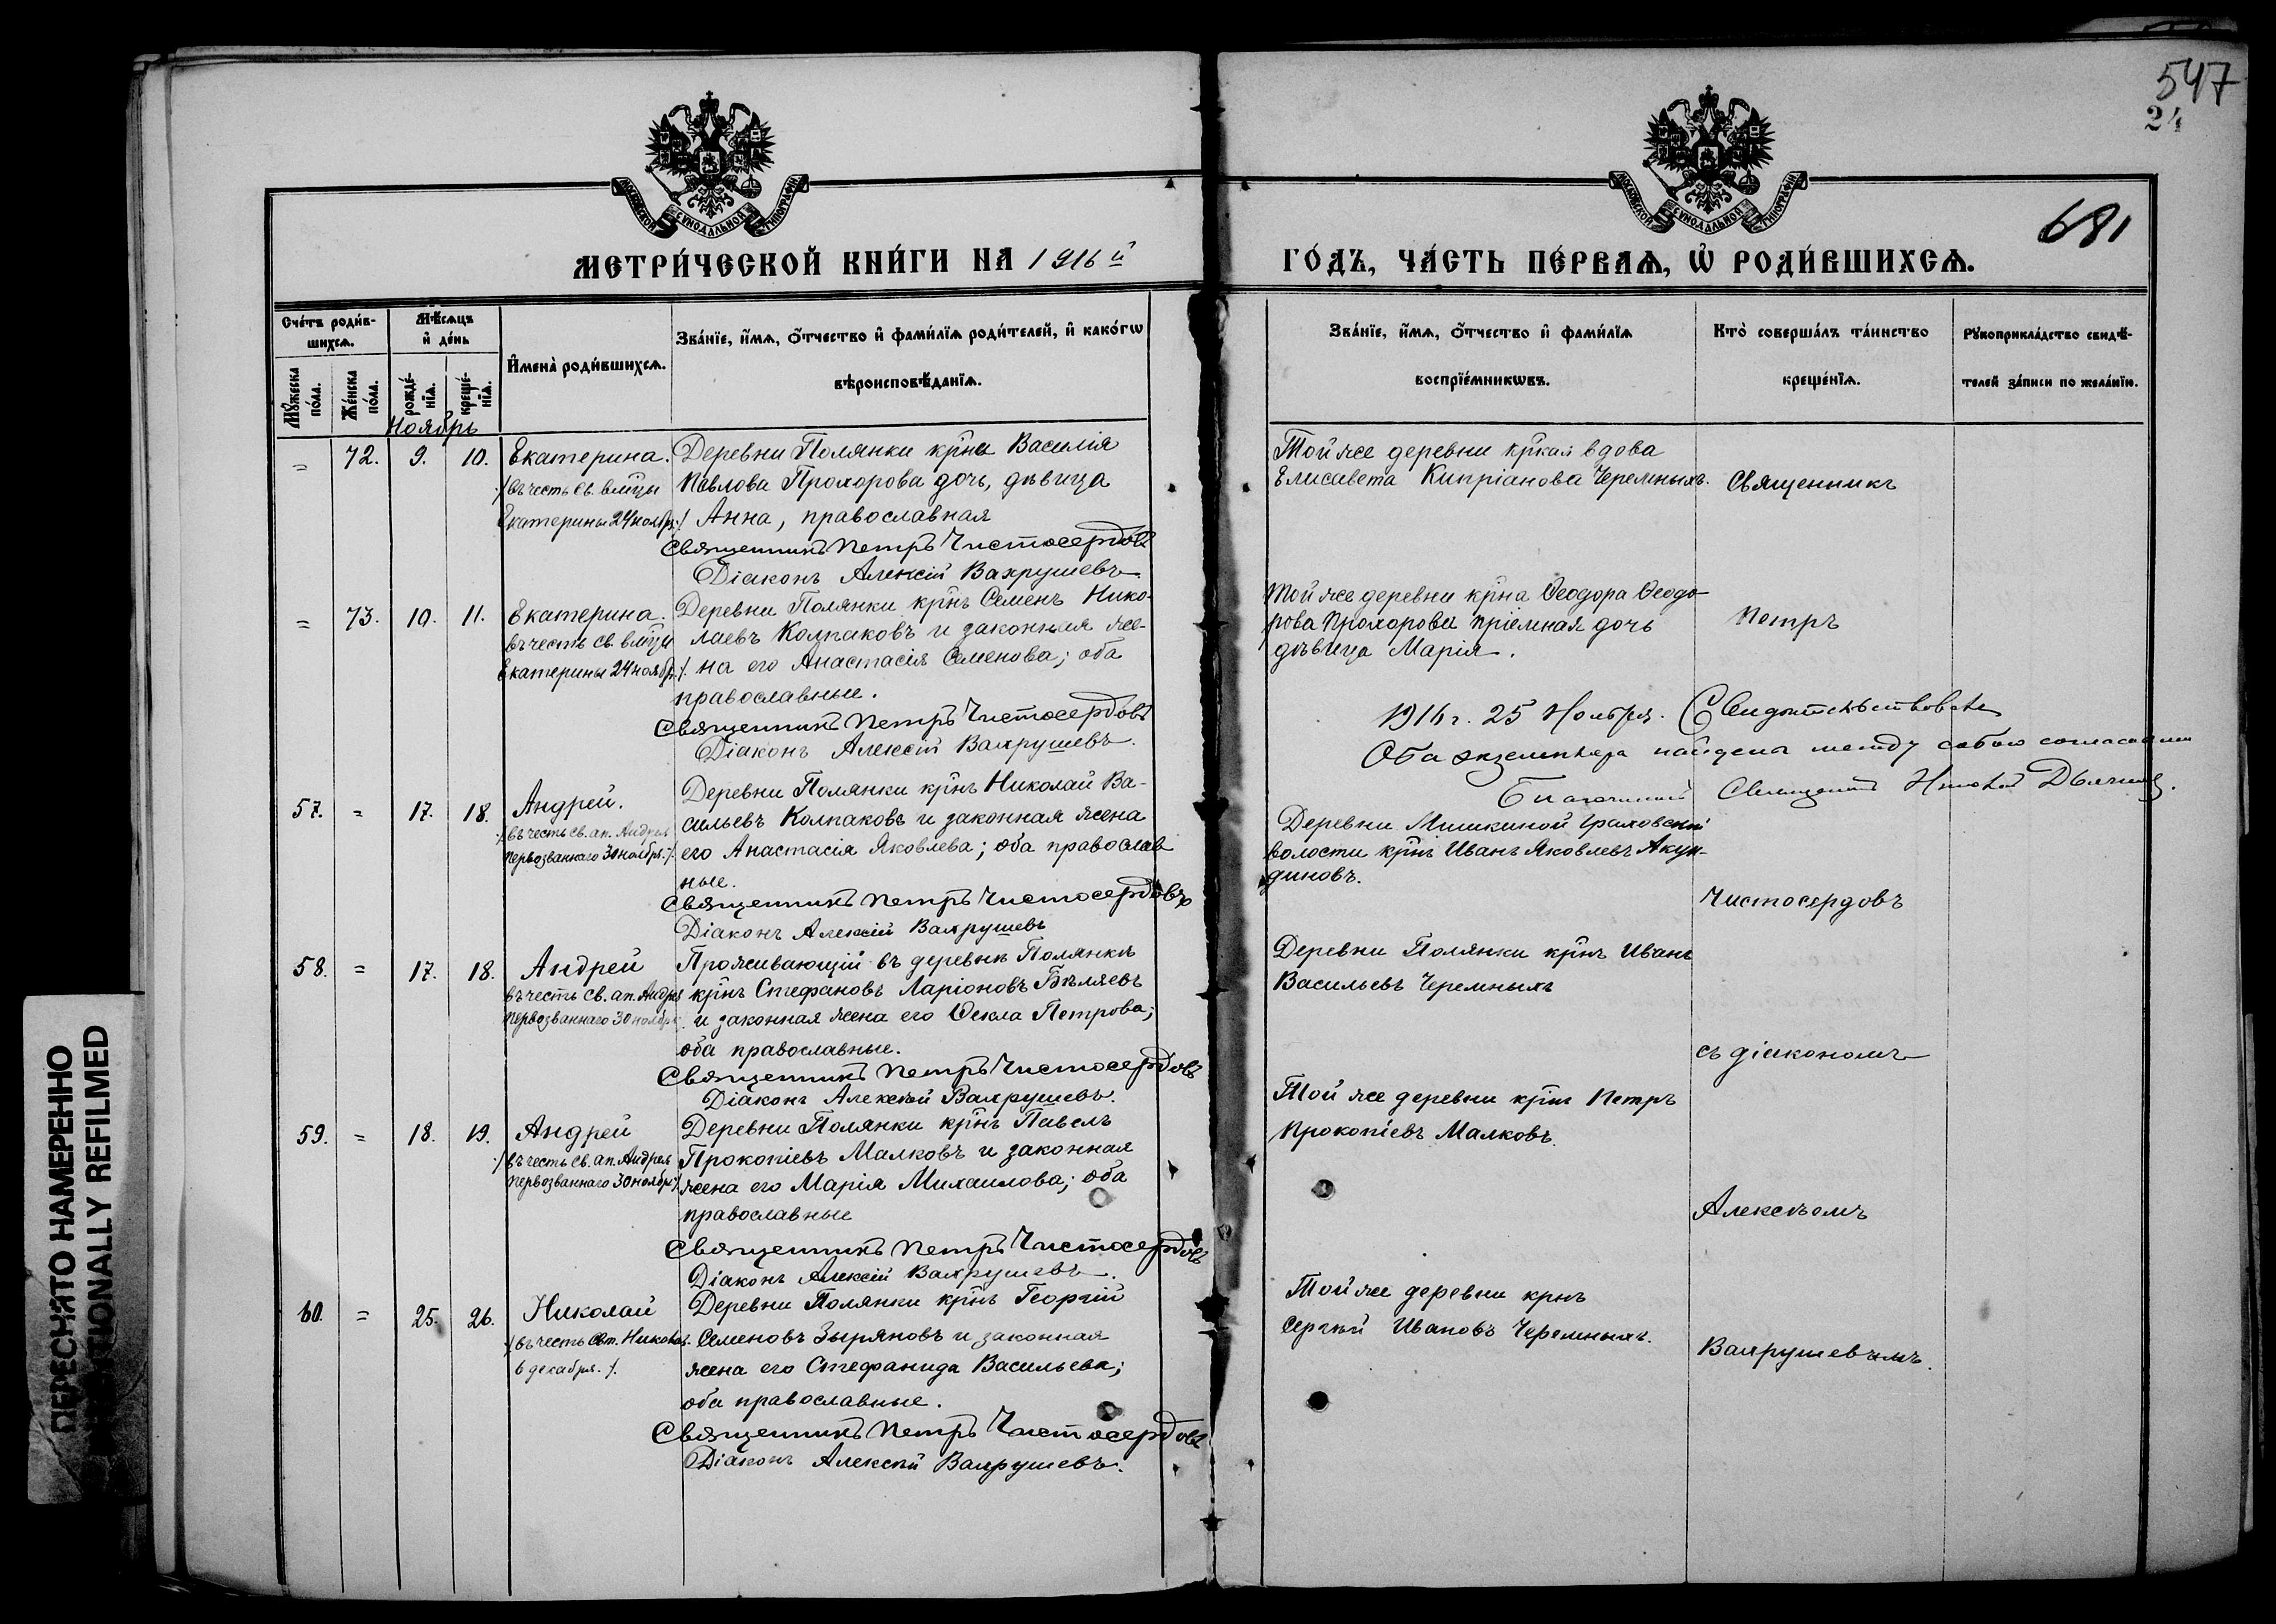 547
24
681
МОСКОВСКОЙ СѴНОДАЛЬНОЙ ТИПОГРАФІИ
МОСКОВСКОЙ СѴНОДАЛЬНОЙ ТИПОГРАФІИ
МЕТРИ́ЧЕСКОЙ КНИ́ГИ НА 1916й
ГО́ДЪ, ЧА́СТЬ ПЕ́РВАѦ, Ѡ҆ РОДИ́ВШИХСѦ.
Сче́тъ роди́в-
шихсѧ.
Мѹ́жеска по́ла.
Же́нска по́ла.
Мѣ́сѧцъ
и҆ де́нь
рожде́-
нїѧ.
креще́-
нїѧ.
И҆мена̀ роди́вшихсѧ.
Зва́нїе, и҆́мѧ, ѻ҆́тчество и҆ фами́лїѧ роди́телей, и҆ како́гѡ
вѣроисповѣ́данїѧ.
Зва́нїе, и҆́мѧ, ѻ҆́тчество и҆ фами́лїѧ
воспрїе́мникѡвъ.
Кто̀ соверша́лъ та́инство
креще́нїѧ.
Рꙋкоприкла́дство свидѣ́-
телей за́писи по жела́нїю.
Ноябрь
= 72. 9. 10. Екатерина.
/въ честь св. влмцы
Екатерины 24 ноябр./
Деревни Полянки крна Василія
Павлова Прохорова дочь, дѣвица
Анна, православная
Священникъ Петръ Чистосердовъ
Діаконъ Алексій Вахрушевъ.
Той же деревни крская вдова
Елисавета Кипріанова Черемныхъ.
Священникъ
= 73. 10. 11. Екатерина.
въ честь св. влмцы
Екатерины 24 ноябр./
Деревни Полянки крнъ Семенъ Нико-
лаевъ Колпаковъ и законная же-
на его Анастасія Семенова; оба
православные.
Священникъ Петръ Чистосердовъ
Діаконъ Алексій Вахрушевъ.
Той же деревни крна Ѳеодора Ѳеодо-
рова Прохорова пріемная дочь
дѣвица Марія.
Петръ
1916 г. 25 Ноября. Свидѣтельствовалъ
Оба экземпляра найдены между собою согласными
Благочинный Священникъ
57. = 17. 18. Андрей.
/въ честь св. ап. Андрея
Первозваннаго 30 ноябр./
Деревни Полянки крнъ Николай Ва-
сильевъ Колпаковъ и законная жена
его Анастасія Яковлева; оба православ
ные.
Священникъ Петръ Чистосердовъ
Діаконъ Алексій Вахрушевъ
Деревни Мишкиной Граховской
волости крнъ Иванъ Яковлевъ Акун-
диновъ.
Чистосердовъ
58. = 17. 18. Андрей
въ честь св. ап. Андрея
Первозваннаго 30 ноябр.
Проживающій въ деревнѣ Полянкѣ
крнъ Стефановъ Ларіоновъ Бѣляевъ
и законная жена его Ѳекла Петрова;
оба православные.
Священникъ Петръ Чистосердовъ
Діаконъ Алексѣй Вахрушевъ.
Деревни Полянки крнъ Иванъ
Васильевъ Черемныхъ
съ діакономъ
59. = 18. 19. Андрей
/въ честь св. ап. Андрея
Первозваннаго 30 ноябр./
Деревни Полянки крнъ Павелъ
Прокопіевъ Малковъ и законная
жена его Марія Михаилова; оба
православные
Священникъ Петръ Чистосердовъ
Діаконъ Алексій Вахрушевъ.
Той же деревни крнъ Петръ
Прокопіевъ Малковъ.
Алексѣемъ
60. = 25. 26. Николай
/въ честь свт. Николая.
6 декабря./.
Деревни Полянки крнъ Георгій
Семеновъ Зыряновъ и законная
жена его Стефанида Васильева;
оба православные.
Священникъ Петръ Чистосердовъ
Діаконъ Алексѣй Вахрушевъ.
Той же деревни крнъ
Сергѣй Ивановъ Черемныхъ.
Вахрушевымъ.
ПЕРЕСНЯТО НАМЕРЕННО
INTENTIONALLY REFILMED